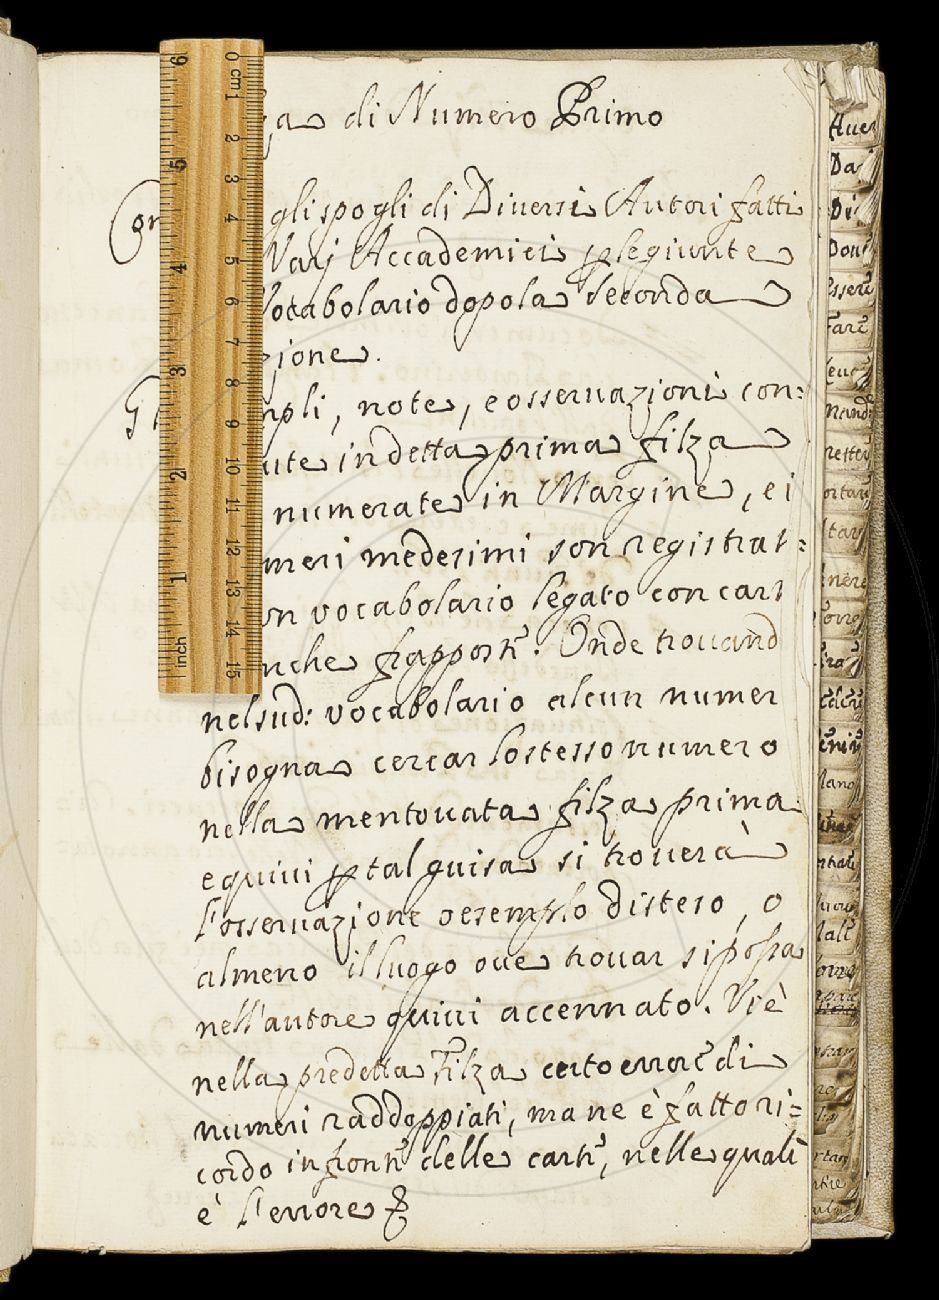 di Numero Primo
gli spogli di Diuersi Autori fatti
Varj Accademici p le giunte
Vocabolario dopo la Seconda
zione.
mpli, note, e osseruazioni con=
ute in detta prima filza
numerate in Margine, e i
meri medesimi son registrat=
un vocabolario legato con cart
nche frapposte. Onde trouand
nel sud: vocabolario alcun numer
bisogna cercar lo stesso numero
nella mentouata filza prima
e quiui p tal guisa si trouerà
l'osseruazione o esemplo disteso, o
almeno il luogo oue trouar si possa
nell'autore quiui accennato. Vi è
nella predetta Filza certo errore di
numeri raddoppiati, ma ne è fatto ri=
cordo in fronte delle carte, nelle quali
è l'errore
0 cm 1 2 3 4 5 6 7 8 9 10 11 12 13 14 15
inch 1 2 3 4 5 6
Dis
Essere
Fare